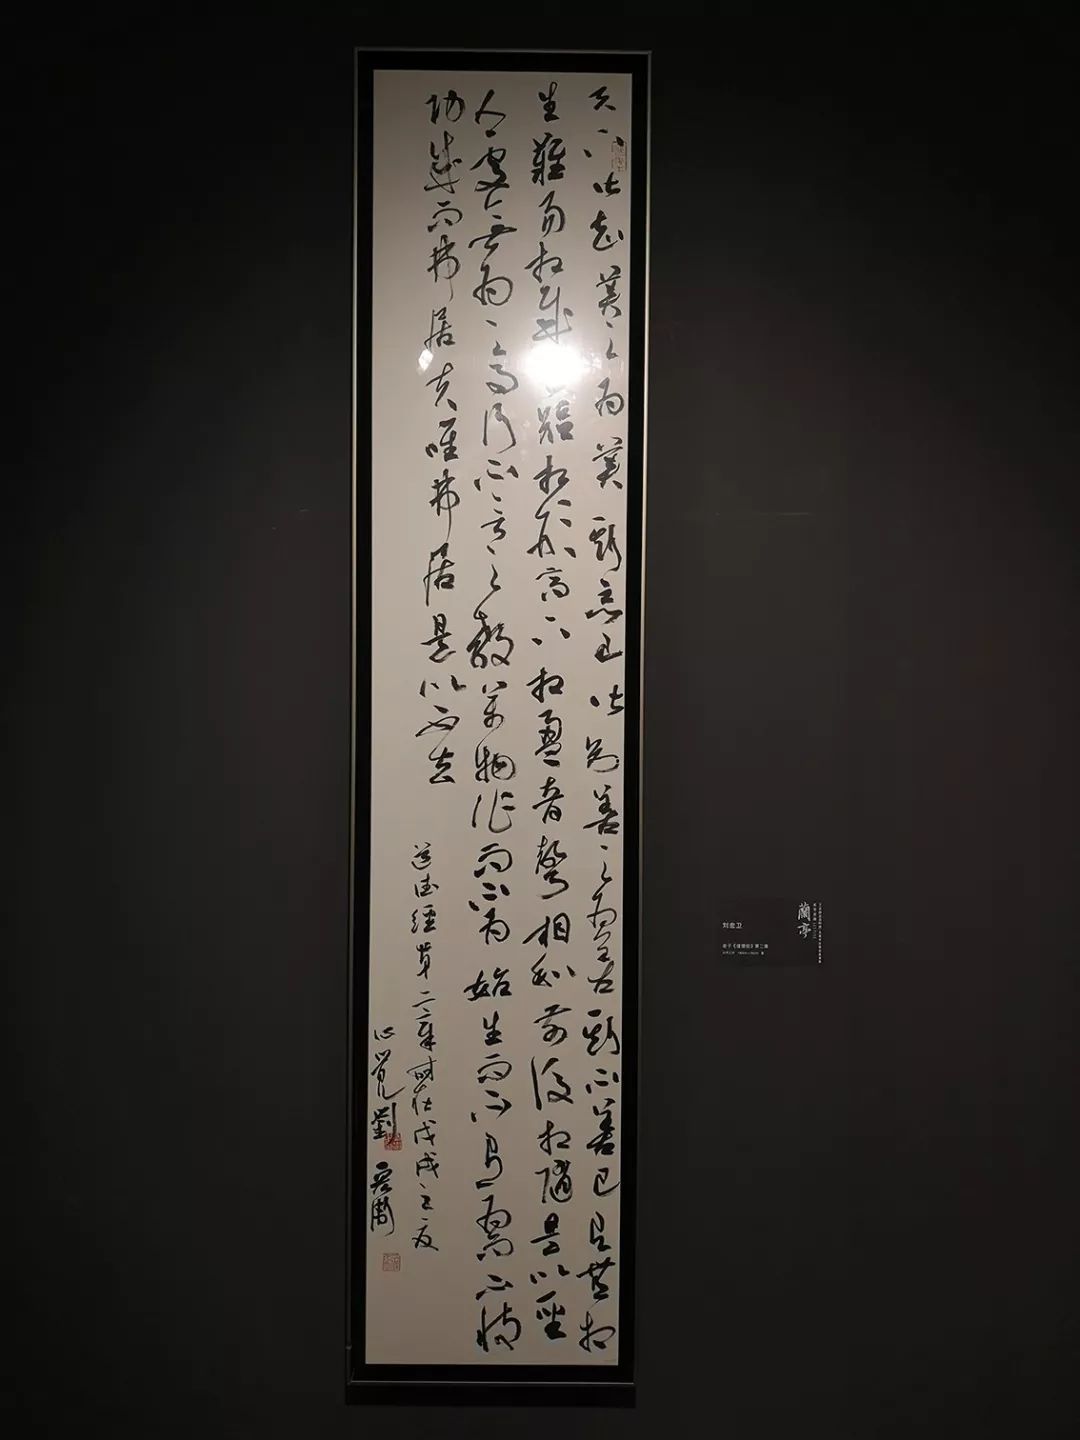 天下皆知美之為美斯惡已皆知善之為善斯不善已有無相
生難易相成短相形高下相盈音聲相和前後相隨是以聖
人處無為之事行不言之教萬物作而不為始生而不有為而不恃
功成而弗居夫唯弗居是以不去
道德經第二章時在戊戌之夏
心覺劉衛
蘭亭
老子《道德经》第二章